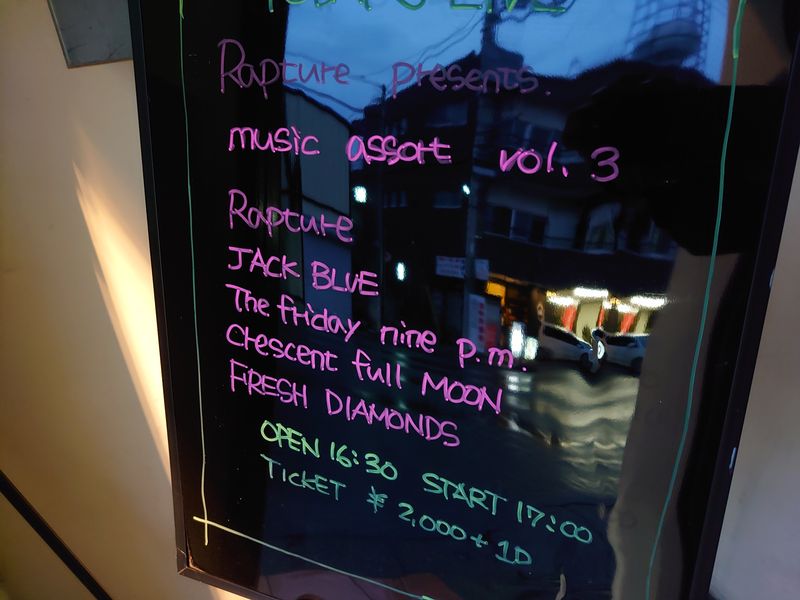 Rapture presents.
music assort vol. 3
Rapture
JACK BLUE
The friday nine p.m.
Crescent full MOON
FRESH DIAMONDS
OPEN 16:30 START 17:00
TICKET ¥ 2,000 + 1D